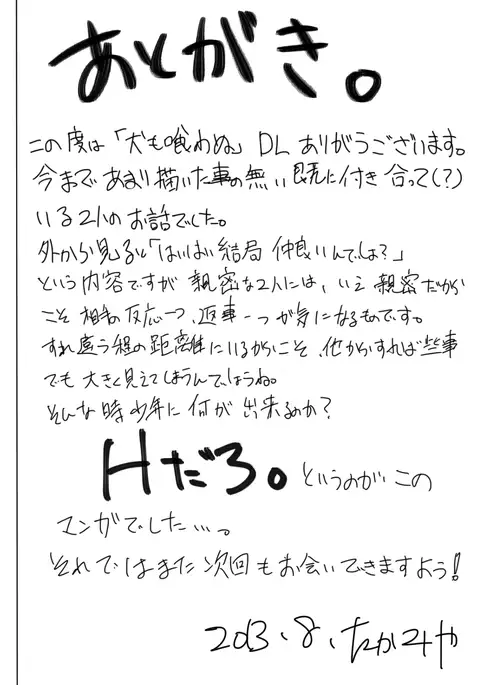 あとがき。
この度は「犬も喰わぬ」DLありがうございます。
今まであまり描いた事の無い既に付き合って(?)
いる2人のお話でした。
外から見ると「はいはい結局仲良いんでしょ?」
という内容ですが親密な2人には、いえ親密だから
こそ相手の反応一つ、返事一つが気になるものです。
すれ違う程の距離にいるからこそ、他からすれば些事
でも大きく見えてしまうんでしょうね。
そんな時少年に何が出来るのか?
Hだろ。というのがこの
マンガでした…。
それではまた次回もお会いできますよう!
2013、8、たかみや